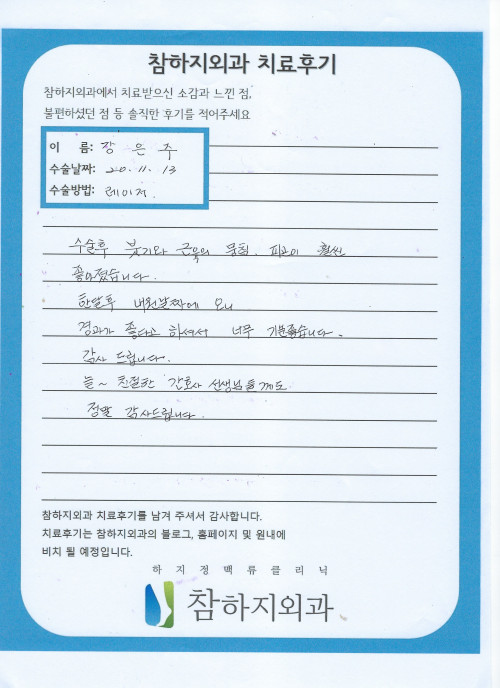 참하지외과 치료후기
참하지외과에서 치료받으신 소감과 느낀 점,
불편하셨던 점 등 솔직한 후기를 적어주세요
이 름: 장 은 주
수술날짜: 20. 11. 13
수술방법: 레이저
수술후 붓기와 근육의 뭉침. 피로이 훨씬
좋아졌습니다.
한달후 내원날짜에 오니
경과가 좋다고 하셔서 너무 기분좋습니다.
감사 드립니다.
늘~ 친절한 간호사 선생님들께도
정말 감사드립니다.
참하지외과 치료후기를 남겨 주셔서 감사합니다.
치료후기는 참하지외과의 블로그, 홈페이지 및 원내에
비치 될 예정입니다.
하 지 정 맥 류 클 리 닉
참하지외과